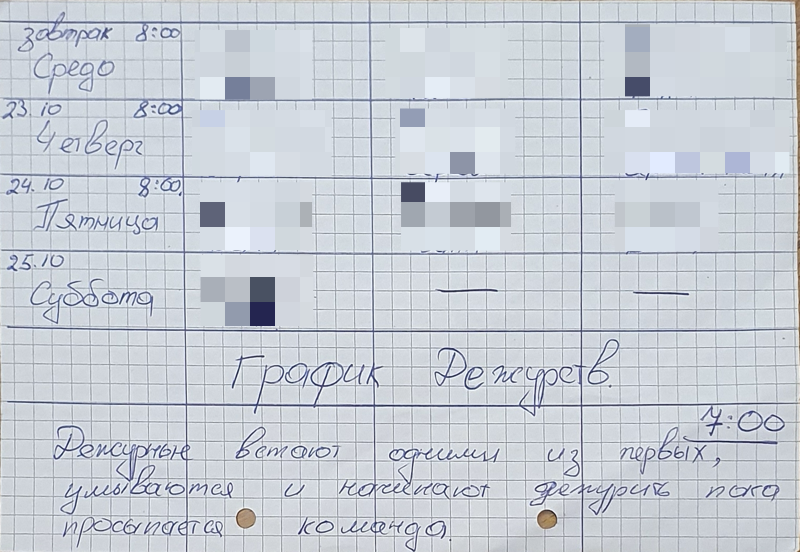 завтрак 8:00
Средо
23.10 8:00
Четверг
24.10 8:00
Пятница
25.10
Суббота — —
График Дежурств.
7:00
Дежурные встают одними из первых,
умываются и начинают дежурить пока
просыпается команда.